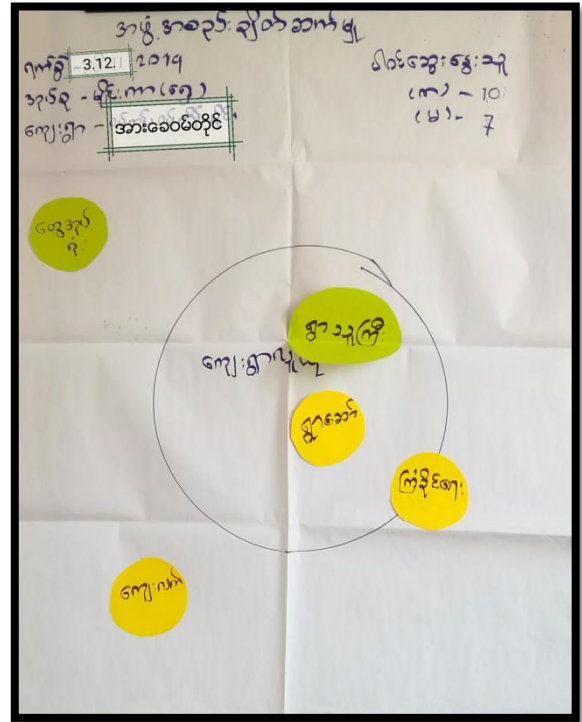 အဖွဲ့အစည်းချိတ်ဆက်မှု
ရက်စွဲ -3.12. 2019
အုပ်စု - မိုင်းကာ(၈)
ကျေးရွာ - အားခေဝမ်တိုင်
ပါဝင်ဆွေးနွေးသူ
(က) - 10
(မ) - 7
ထွေအုပ်
ရုံး
ရွာသူကြီး
ကျေးရွာလူထု
ရွာဆော်
ကြံ့ခိုင်ရေး
ကျေးလက်